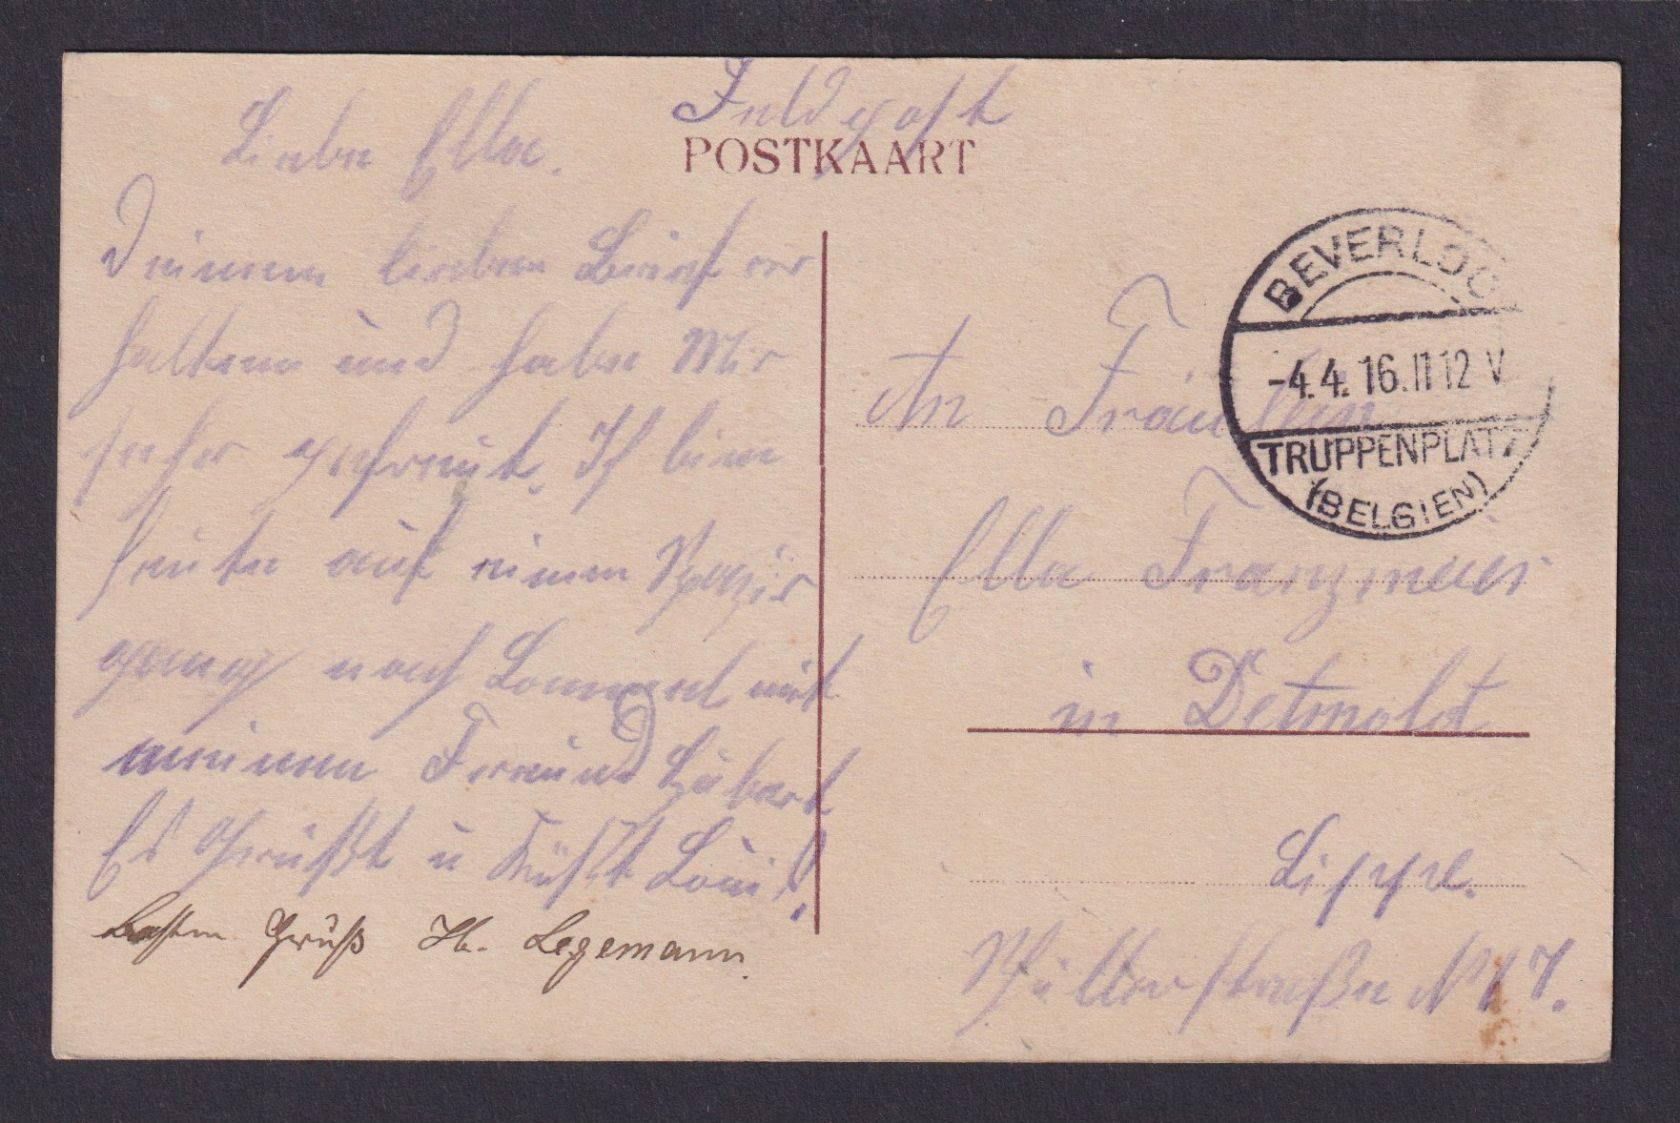 Feldpost
POSTKAART
Liebe Ella.
Deinen lieben Brief er
halten und habe Mir
sehr gefreut. Ich bin
heute auf einen Spazir
gang nach Lommel mit
meinen Freund
Es Grüßt u Küßt Loui!
Besten Gruß H. Legemann.
BEVERLOO
-4.4.16.11 12 V
TRUPPENPLATZ
(BELGIEN)
An Fräulein
Ella Franzmeier
in Detmold
Lippe.